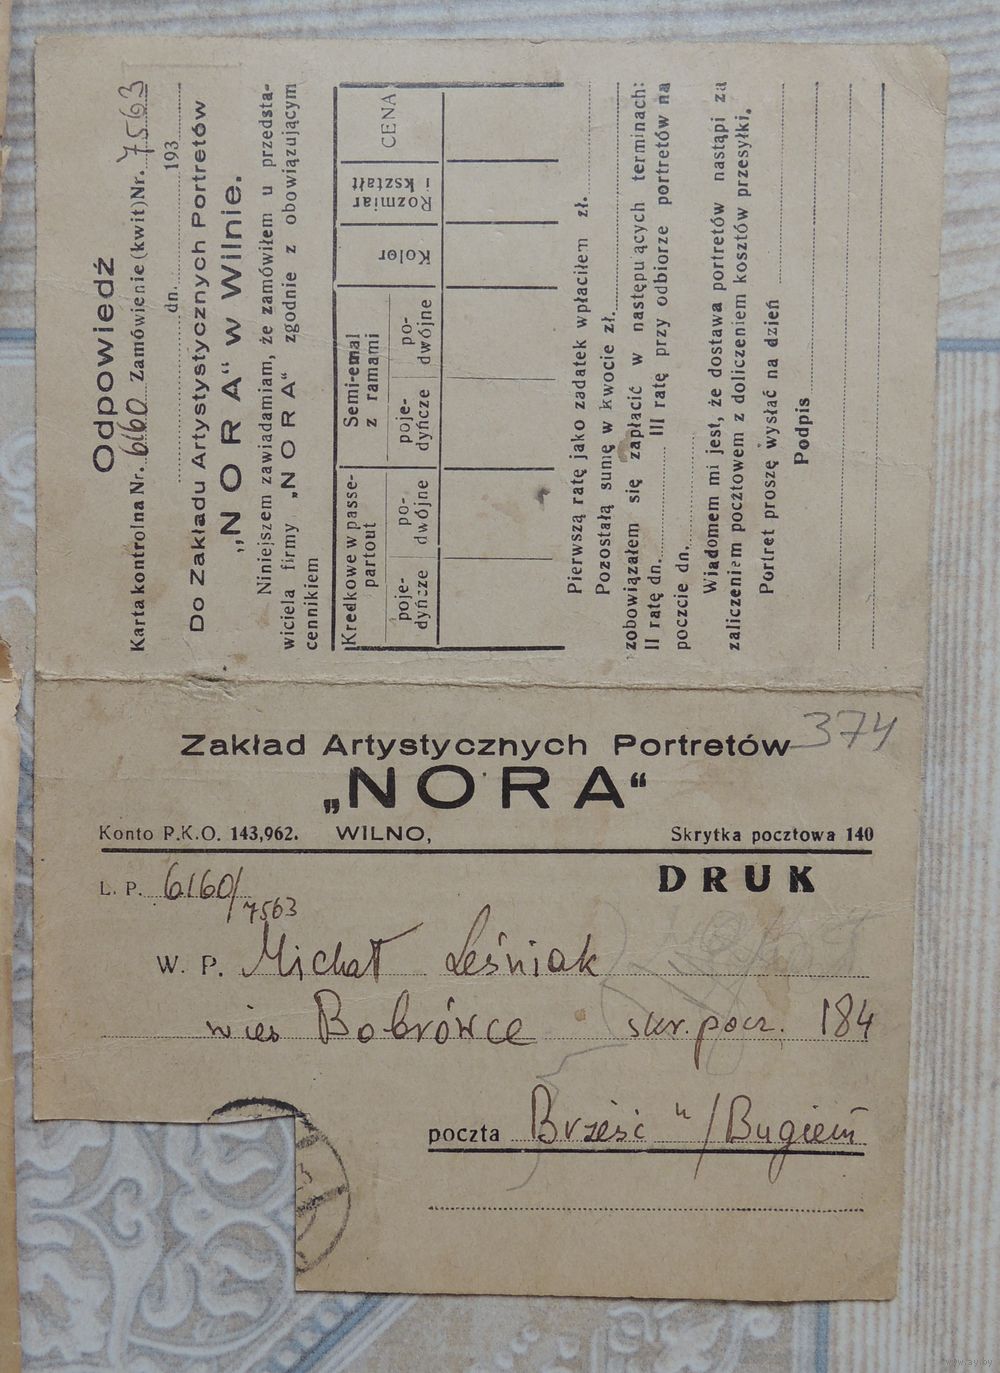 Odpowiedź
Karta kontrolna Nr. 6160 Zamówienie (kwit) Nr. 7563
dn. 193
Do Zakładu Artystycznych Portretów
„NORA“ w Wilnie.
Niniejszem zawiadamiam, że zamówiłem u przedsta-
wiciela firmy „NORA“ zgodnie z obowiązującym
cennikiem
Kredkowe w passe-
partout
Semi-emal
z ramami
Kolor
Rozmiar
i kształt
CENA
poje-
dyńcze
po-
dwójne
poje-
dyńcze
po-
dwójne
Pierwszą ratę jako zadatek wpłaciłem zł.
Pozostałą sumę w kwocie zł.
zobowiązałem się zapłacić w następujących terminach:
II ratę dn. III ratę przy odbiorze portretów na
poczcie dn.
Wiadomem mi jest, że dostawa portretów nastąpi za
zaliczeniem pocztowem z doliczeniem kosztów przesyłki.
Portret proszę wysłać na dzień
Podpis
374
Zakład Artystycznych Portretów
„NORA“
Konto P.K.O. 143,962. WILNO, Skrytka pocztowa 140
DRUK
L. P. 6160/7563
W. P. Michał Leśniak
wieś Bobrówce skr. pocz. 184
poczta Brześć n/Bugiem
www.ay.by